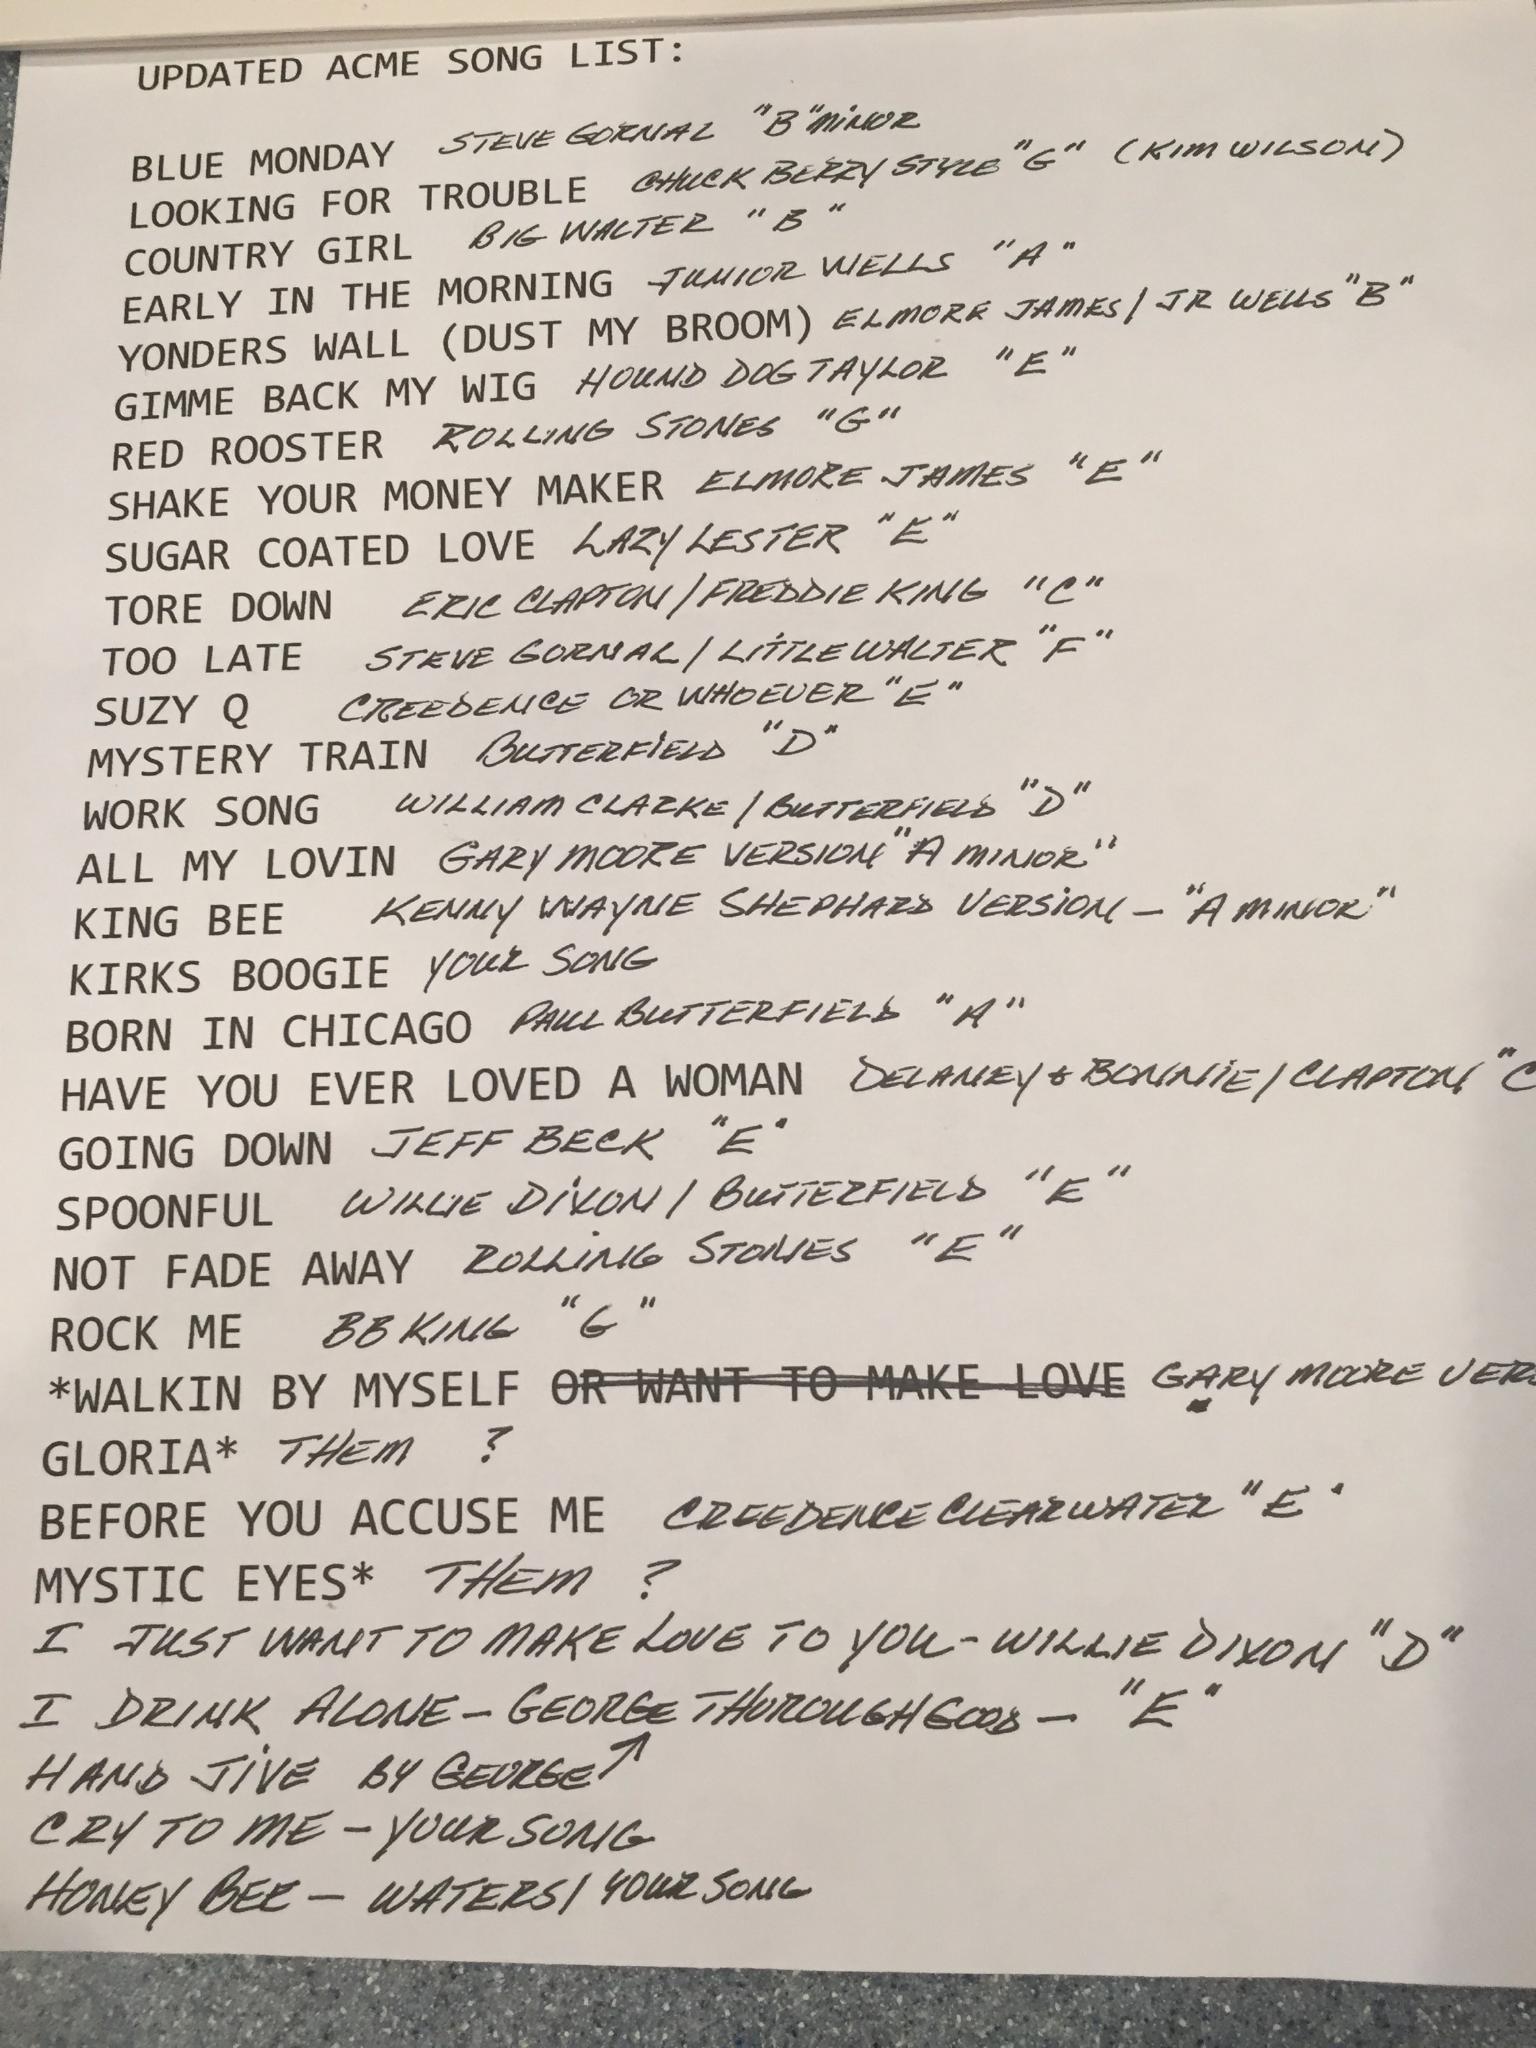 UPDATED ACME SONG LIST:
BLUE MONDAY STEVE GORNAL "B" MINOR
LOOKING FOR TROUBLE CHUCK BERRY STYLE "G" (KIM WILSON)
COUNTRY GIRL BIG WALTER "B"
EARLY IN THE MORNING JUNIOR WELLS "A"
YONDERS WALL (DUST MY BROOM) ELMORE JAMES/JR WELLS "B"
GIMME BACK MY WIG HOUND DOG TAYLOR "E"
RED ROOSTER ROLLING STONES "G"
SHAKE YOUR MONEY MAKER ELMORE JAMES "E"
SUGAR COATED LOVE LAZY LESTER "E"
TORE DOWN ERIC CLAPTON/FREDDIE KING "C"
TOO LATE STEVE GORNAL/LITTLE WALTER "F"
SUZY Q CREEDENCE OR WHOEVER "E"
MYSTERY TRAIN BUTTERFIELD "D"
WORK SONG WILLIAM CLARKE/BUTTERFIELD "D"
ALL MY LOVIN GARY MOORE VERSION "A MINOR"
KING BEE KENNY WAYNE SHEPHARD VERSION - "A MINOR"
KIRKS BOOGIE YOUR SONG
BORN IN CHICAGO PAUL BUTTERFIELD "A"
HAVE YOU EVER LOVED A WOMAN DELANEY & BONNIE/CLAPTON "C
GOING DOWN JEFF BECK "E"
SPOONFUL WILLIE DIXON/BUTTERFIELD "E"
NOT FADE AWAY ROLLING STONES "E"
ROCK ME BB KING "G"
*WALKIN BY MYSELF OR WANT TO MAKE LOVE GARY MOORE VERS
GLORIA* THEM ?
BEFORE YOU ACCUSE ME CREEDENCE CLEARWATER "E"
MYSTIC EYES* THEM ?
I JUST WANT TO MAKE LOVE TO YOU - WILLIE DIXON "D"
I DRINK ALONE - GEORGE THOROUGHGOOD - "E"
HAND JIVE BY GEORGE ↑
CRY TO ME - YOUR SONG
HONEY BEE - WATERS/YOUR SONG